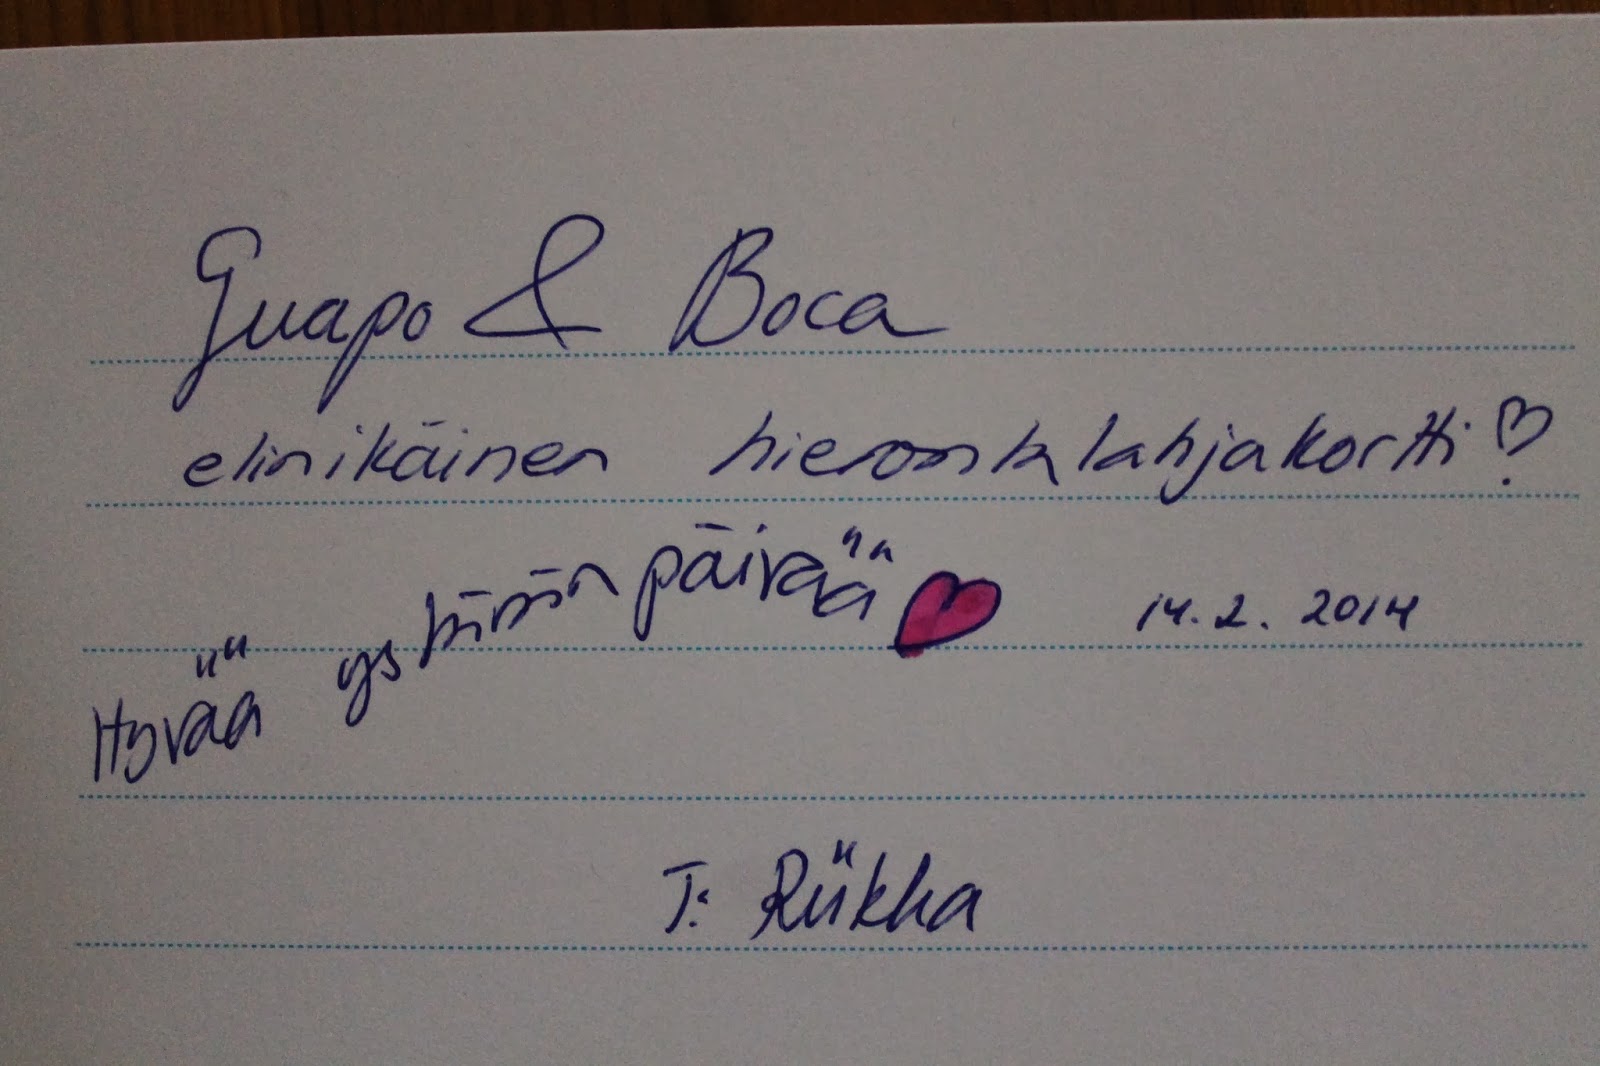 Guapo & Boca
elinikäinen hierontalahjakortti!
Hyvää ystävänpäivää 14.2. 2014
T: Riikka